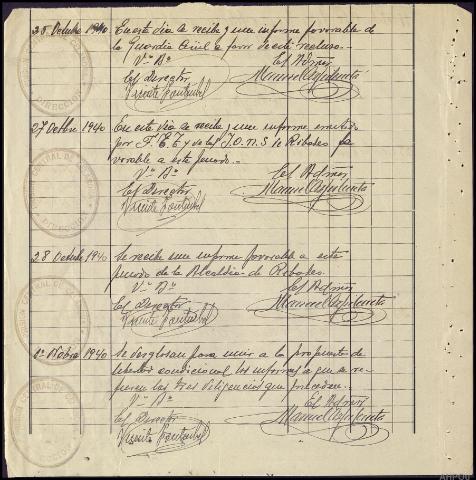 25 Octubre 1940 En este día se recibe un informe favorable de
la Guardia Civil a favor de este recluso.-
Vº Bº El Admor
El Director Manuel
Vicente
27 Octbre 1940 En este día se recibe un informe emitido
por F. E. T. y de las J.O.N.S. de Ribadeo fa
vorable a este penado.-
Vº Bº El Admor
El Director Manuel
Vicente
28 Octubre 1940 Se recibe un informe favorable a este
penado de la Alcaldía de Ribadeo.
Vº Bº El Admor
El Director Manuel
Vicente
1º 1940 Se desglosan para unir a la propuesta de
libertad condicional, los informes a que se re-
fieren las tres diligencias que preceden.-
Vº Bº El Admor
El Director Manuel
Vicente
PRISION CENTRAL DE
DIRECCION